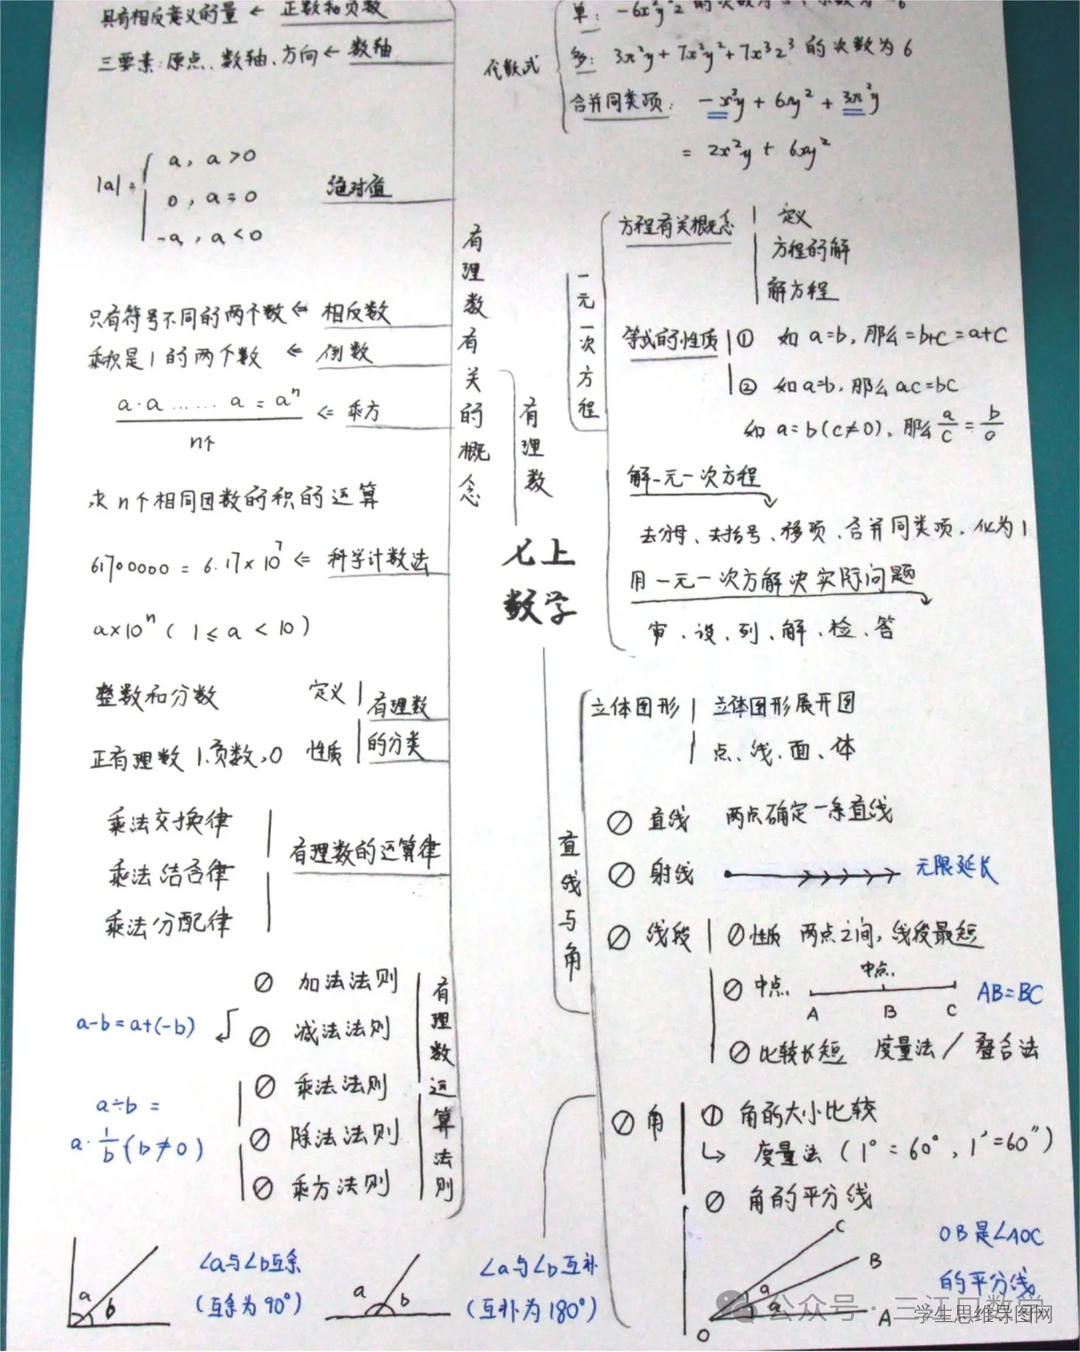 具有相反意义的量 ← 正数和负数
三要素:原点、数轴、方向 ← 数轴
|a| = a, a>0
0, a=0
-a, a<0
绝对值
只有符号不同的两个数 ⇐ 相反数
乘积是1的两个数 ⇐ 倒数
a·a……a = aⁿ ⇐ 乘方
n个
求n个相同因数的积的运算
61700000 = 6.17×10⁷ ⇐ 科学计数法
a×10ⁿ ( 1≤a<10 )
整数和分数 定义
正有理数、负数、0 性质
有理数的分类
乘法交换律
乘法结合律
乘法分配律
有理数的运算律
∅ 加法法则
a-b=a+(-b)
∅ 减法法则
∅ 乘法法则
a÷b=
a·1/b (b≠0)
∅ 除法法则
∅ 乘方法则
有理数运算法则
有理数有关的概念
有理数
七上
数学
代数式
单:
多: 3x²y+7x²y²+7x³z³ 的次数为6
合并同类项: -x²y+6xy²+3x²y
= 2x²y+6xy²
一元一次方程
方程有关概念
定义
方程的解
解方程
等式的性质
① 如a=b,那么=b+c=a+c
② 如a=b,那么ac=bc
如a=b(c≠0),那么a/c=b/0
解一元一次方程
去分母、去括号、移项、合并同类项、化为1
用一元一次方解决实际问题
审、设、列、解、检、答
直线与角
立体图形
立体图形展开图
点、线、面、体
∅ 直线 两点确定一条直线
∅ 射线 无限延长
∅ 线段
∅ 性质 两点之间,线段最短
∅ 中点 中点 AB=BC
A B C
∅ 比较长短 度量法/叠合法
∅ 角
① 角的大小比较
↳ 度量法 (1°=60°,1′=60″)
∅ 角的平分线
C
B
A
O
a
a
OB是∠AOC
的平分线
a
b
∠a与∠b互余
(互余为90°)
a
b
∠a与∠b互补
(互补为180°)
公众号·三江口数学
学生思维导图网